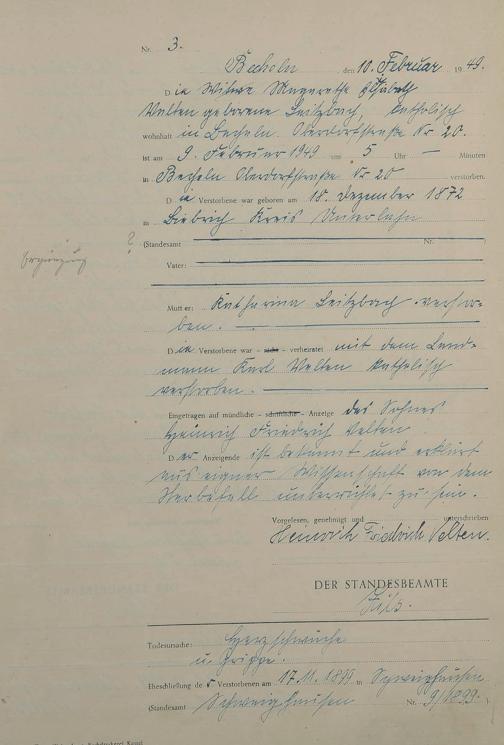 Nr. 3.
Becheln, den 10. Februar 1949.
Die Witwe Margarethe Elisabeth
Velten geborene Leitzbach, katholisch
wohnhaft in Becheln Oberdorfstraße Nr 20.
ist am 9. Februar 1949 um 5 Uhr — Minuten
in Becheln Oberdorfstraße Nr 20 verstorben.
Die Verstorbene war geboren am 18. Dezember 1872
in Biebrich Kreis Unterlahn
(Standesamt Nr. )
? Ergänzung
Vater:
Mutter: Katharina Leitzbach verstor-
ben.
Die Verstorbene war – nicht – verheiratet mit dem Land-
mann Karl Velten katholisch
verstorben.
Eingetragen auf mündliche – schriftliche – Anzeige des Sohnes
Heinrich Friedrich Velten
Der Anzeigende ist bekannt und erklärt
aus eigner Wissenschaft von dem
Sterbefall unterrichtet zu sein.
Vorgelesen, genehmigt und unterschrieben
Heinrich Friedrich Velten.
DER STANDESBEAMTE
Todesursache: Herzschwäche
u. Grippe.
Eheschließung der Verstorbenen am 17.11.1899 in Schweighausen
(Standesamt Schweighausen Nr. 9/1899.)